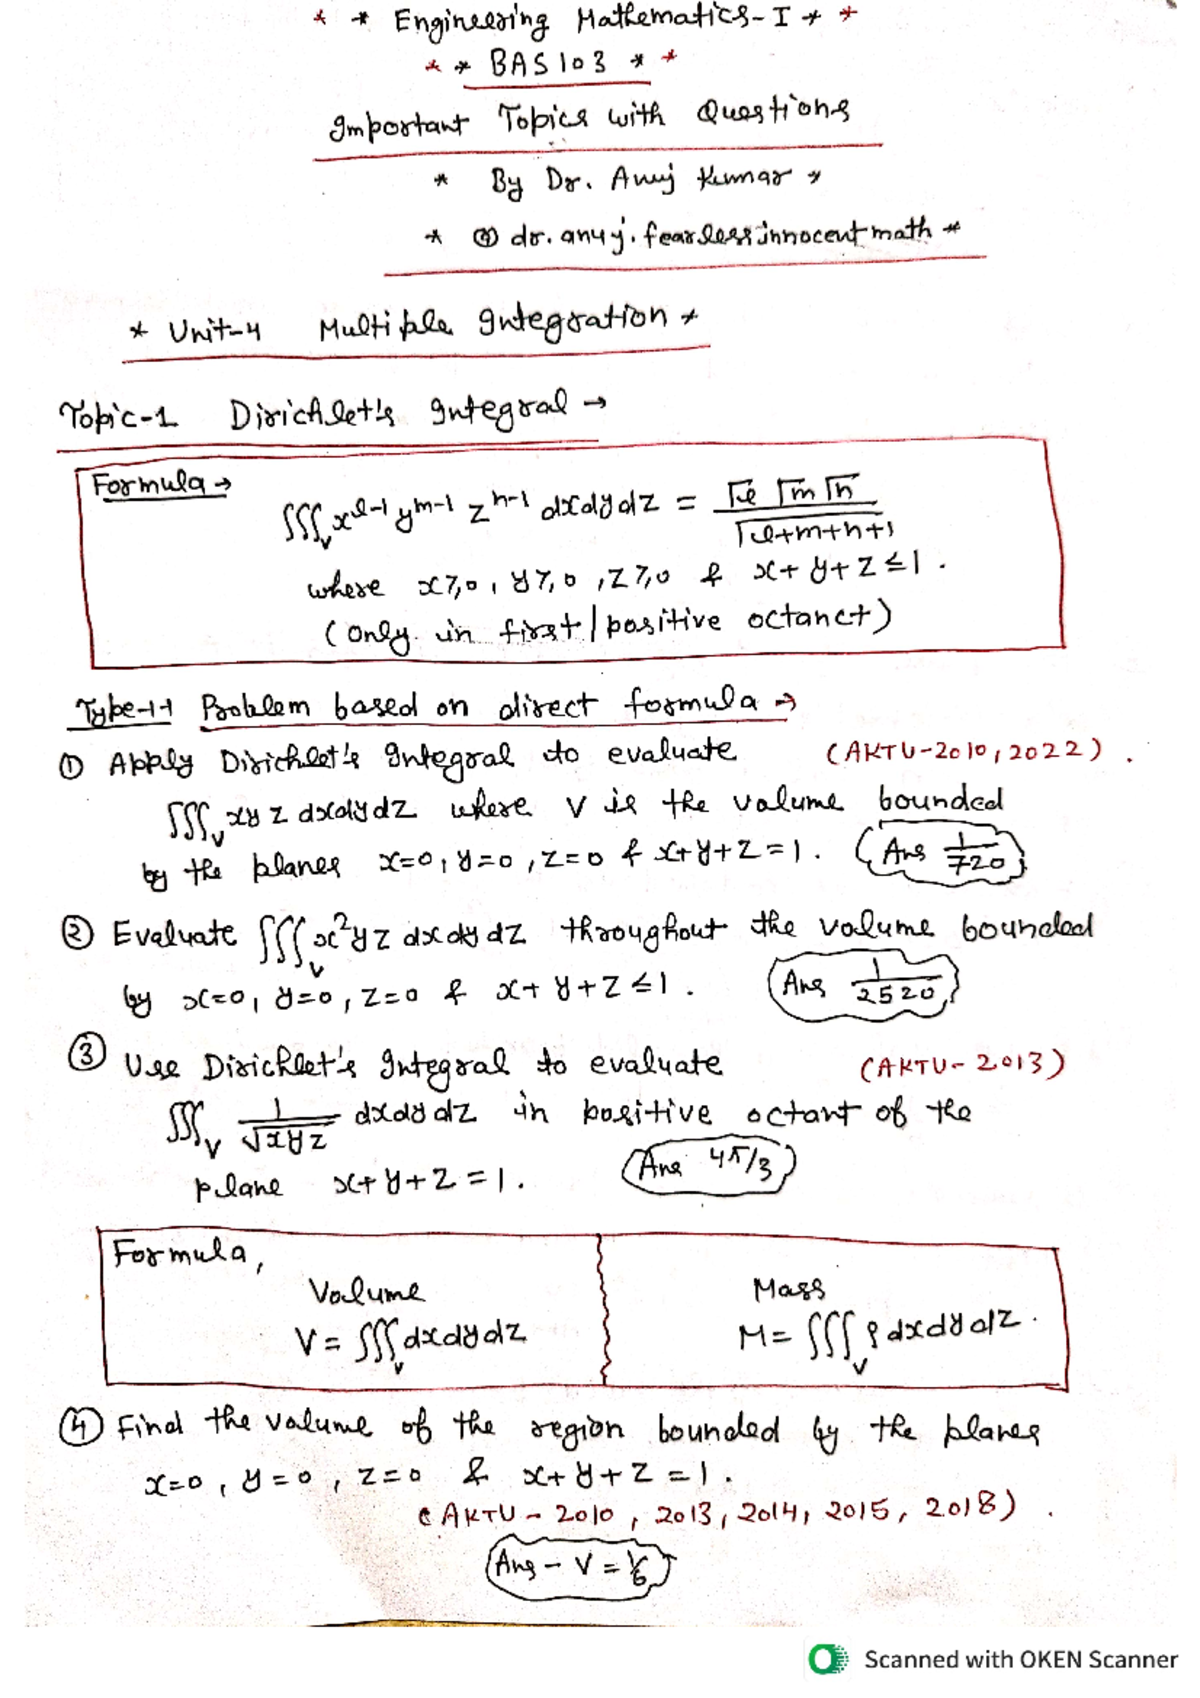 * * Engineering Mathematics-I * *
* * BAS103 * *
Important Topics with Questions
* By Dr. Anuj Kumar *
* @ dr.anuj.fearlessinnocentmath *
* Unit-4 Multiple Integration *
Topic-1 Dirichlet's Integral →
Formula →
∭_V x^{l-1} y^{m-1} z^{n-1} dxdydz = Γl Γm Γn / Γl+m+n+1
where x≥0, y≥0, z≥0 & x+y+z≤1.
(only in first/positive octanct)
Type-1→ Problem based on direct formula →
① Apply Dirichlet's Integral to evaluate (AKTU-2010, 2022).
∭_V xyz dxdydz where V is the volume bounded
by the planes x=0, y=0, z=0 & x+y+z=1. Ans 1/720
② Evaluate ∭_V x²yz dxdydz throughout the volume bounded
by x=0, y=0, z=0 & x+y+z≤1. Ans 1/2520
③ Use Dirichlet's Integral to evaluate (AKTU-2013)
∭_V 1/√xyz dxdydz in positive octant of the
plane x+y+z=1. Ans 4π/3
Formula,
Volume Mass
V = ∭_V dxdydz M = ∭_V ρ dxdydz.
④ Find the volume of the region bounded by the planes
x=0, y=0, z=0 & x+y+z=1.
(AKTU-2010, 2013, 2014, 2015, 2018).
Ans - V = 1/6
Scanned with OKEN Scanner